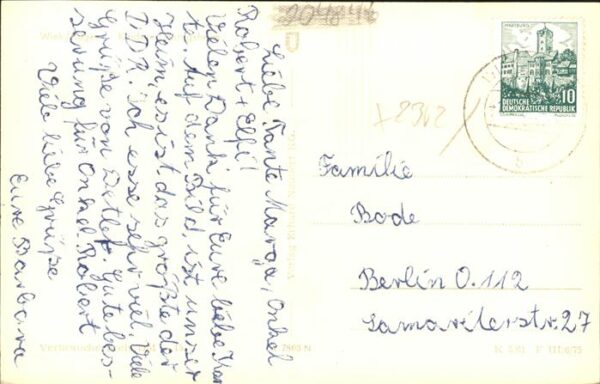 204841
Liebe Tante Marga, Onkel
Robert + Elfi!
Vielen Dank für Eure liebe Kar
te. Auf dem Bild ist unser
Heim, es ist das größte der
DDR. Ich esse sehr viel. Viele
Grüße von Detlef. Gute Bes-
serung für Onkel Robert
Viele liebe Grüße
Eure Barbara
WARTBURG
10
DEUTSCHE
DEMOKRATISCHE REPUBLIK
Familie
Bode
Berlin O. 112
Samariterstr. 27